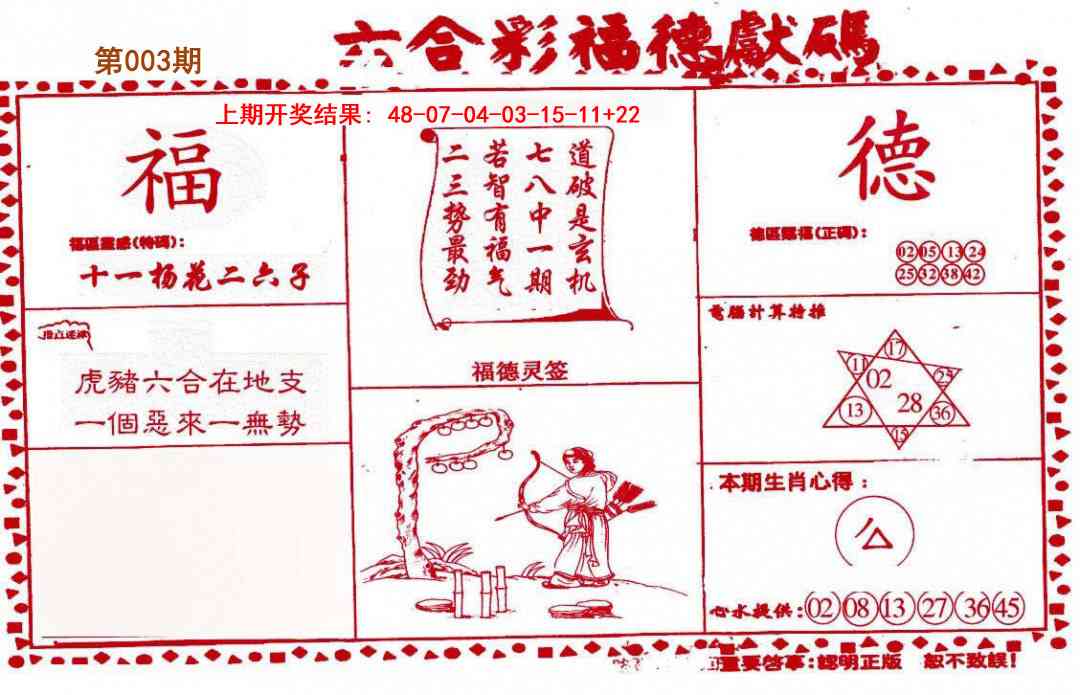 六合彩福德獻碼
第003期
上期开奖结果: 48-07-04-03-15-11+22
福
福區靈感(特碼):
十一杨花二六子
虎豬六合在地支
一個惡來一無勢
道破是玄机
七八中一期
若智有福气
二三势最劲
福德灵签
德
德區賜福(正碼):
02 05 13 24
25 32 38 42
電腦計算特推
17
11 02 25
13 28 36
15
本期生肖心得:
心水提供: 02 08 13 27 36 45
重要啓事:認明正版 恕不致誤!